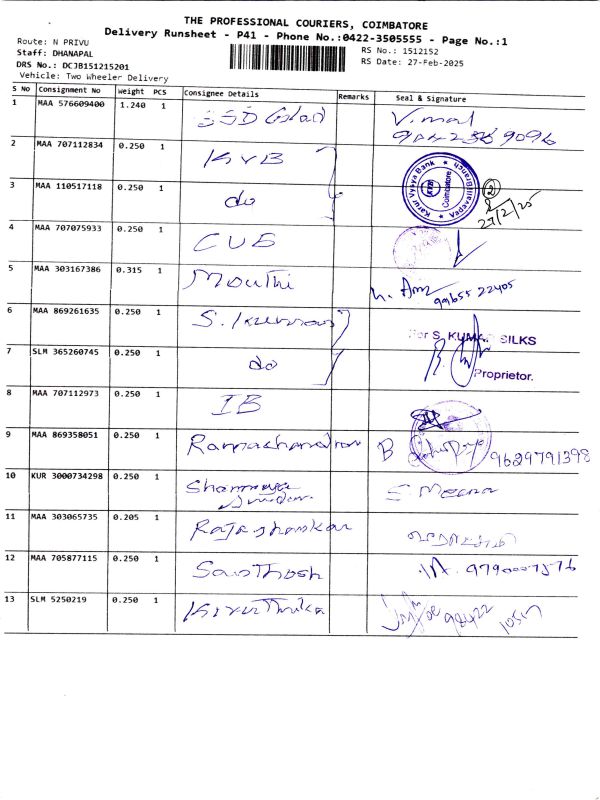 THE PROFESSIONAL COURIERS, COIMBATORE
Delivery Runsheet - P41 - Phone No.:0422-3505555 - Page No.:1
Route: N PRIVU
Staff: DHANAPAL
DRS No.: DCJB151215201
Vehicle: Two Wheeler Delivery
RS No.: 1512152
RS Date: 27-Feb-2025
S No Consignment No Weight PCS Consignee Details Remarks Seal & Signature
1 MAA 576609400 1.240 1 SSD V.mal
2 MAA 707112834 0.250 1 KVB Karur Vysya Bank Vadavalli Branch Coimbatore
3 MAA 110517118 0.250 1 do 27/2/25
4 MAA 707075933 0.250 1 CUB
5 MAA 303167386 0.315 1 Mouthi
6 MAA 869261635 0.250 1 S. Kumar For S. KUMAR SILKS
7 SLM 365260745 0.250 1 do Proprietor.
8 MAA 707112973 0.250 1 IB
9 MAA 869358051 0.250 1 Ramachandran B 9629791398
10 KUR 3000734298 0.250 1 Shanmuga Sundar S. Meena
11 MAA 303065735 0.205 1 Rajashankar
12 MAA 705877115 0.250 1 Santhosh 9790007576
13 SLM 5250219 0.250 1 Kiruthika 98422